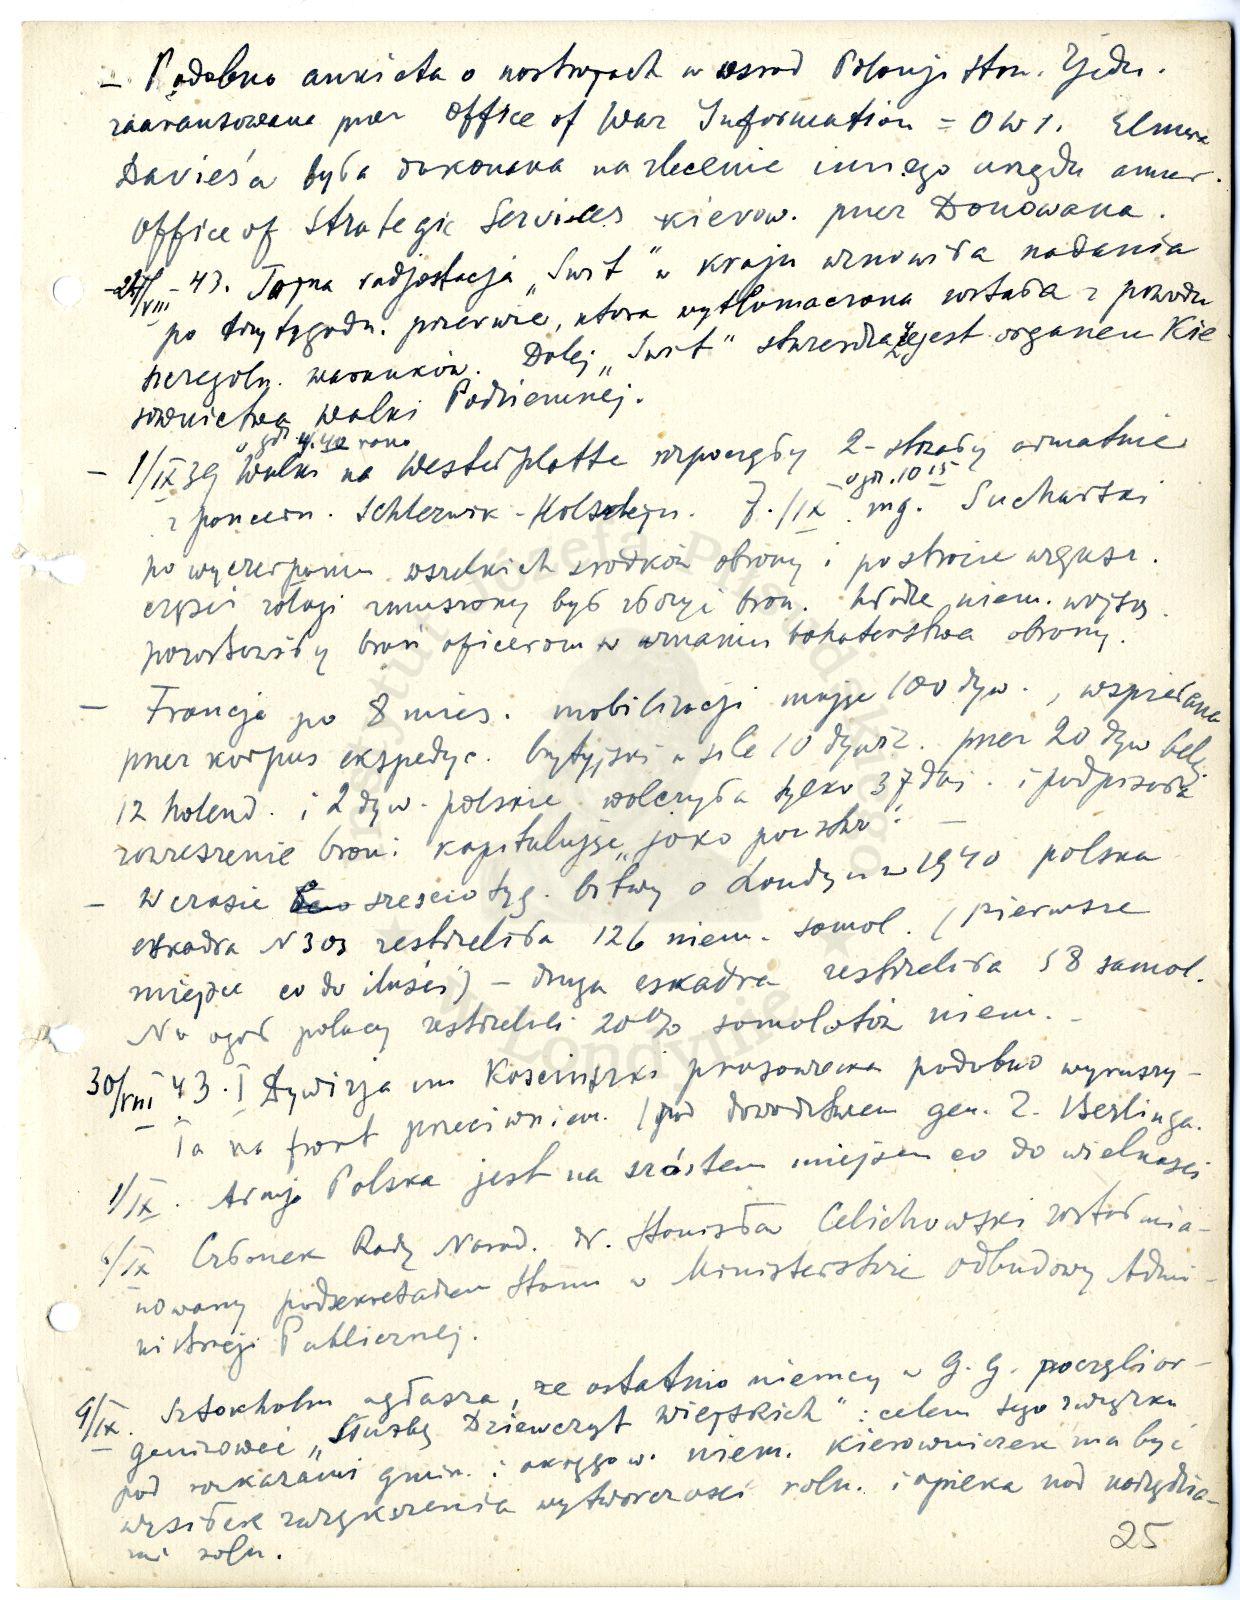 – Podobna ankieta o nastrojach w wsrod Polonji stan. Zjedn.
zaaranzowana przez Office of War Information = OWI. Elmera
Davies'a była dokonana na zlecenie innego urzędu amer.
Office of Strategic Services kierow. przez Donowana.
– 24/VIII – 43. Tajna radjostacja „Swit" w kraju wznowiła nadania
po trzytygodn. przerwie, ktora wytłomaczona została z powodu
szczegoln. warunków. Dalej „Swit" stwierdza, że jest organem Kie-
rownictwa Walki Podziemnej.
o gdz 4.40 rano
– 1/IX 39 Walki na Westerplatte rozpoczęły 2 – strzały armatnie
o gdz. 10 15
z pancern. Schlezwik – Holsztejn. 7./IX mjr. Sucharski
po wyczerpaniu wszelkich srodków obrony i po stracie większ.
części załogi zmuszony był złożyć broń. Władze niem. wojsk.
pozostawiły broń oficerom w uznaniu bohaterstwa obrony.
– Francja po 8 mies. mobilizacji mając 100 dyw., wspierana
przez korpus ekspedyc. brytyjski w sile 10 dywiz. przez 20 dyw belg.
12 holend. i 2 dyw. polskie walczyła tylko 37 dni. i podpisała
zawieszenie broni kapitulując „jako
– W czasie szescio tyg. bitwy o Londyn w 1940 polska
eskadra N 303 zestrzeliła 126 niem. samol. (pierwsze
miejsce co do ilości) – druga eskadra zestrzeliła 58 samol.
Na ogół polacy zestrzelili 20% samolotów niem. –
30/VIII 43. I Dywizja im Kosciuszki prasowana podobno wyruszy-
ła na front przeciwniem. (pod dowodztwem gen. Z. Berlinga.
1/IX. Armja Polska jest na szóstem miejscu co do wielkosci
6/IX Członek Rady Narod. dr. Stanisław Celichowski został mia-
nowany podsekretarzem Stanu w Ministerstwie odbudowy Admi-
nistracji Publicznej.
9/IX. Sztokholm ogłasza, ze ostatnio niemcy w G. G. poczęli or-
ganizować „Służbę Dziewcząt Wiejskich": celem tego związku
pod rozkazami gmin. i okręgow. niem. kierowniczek ma być
wysiłek zwiększenia wytworczosci roln. i opieka nad narzędzia-
mi roln.
25
Instytut Józefa Piłsudskiego
w Londynie